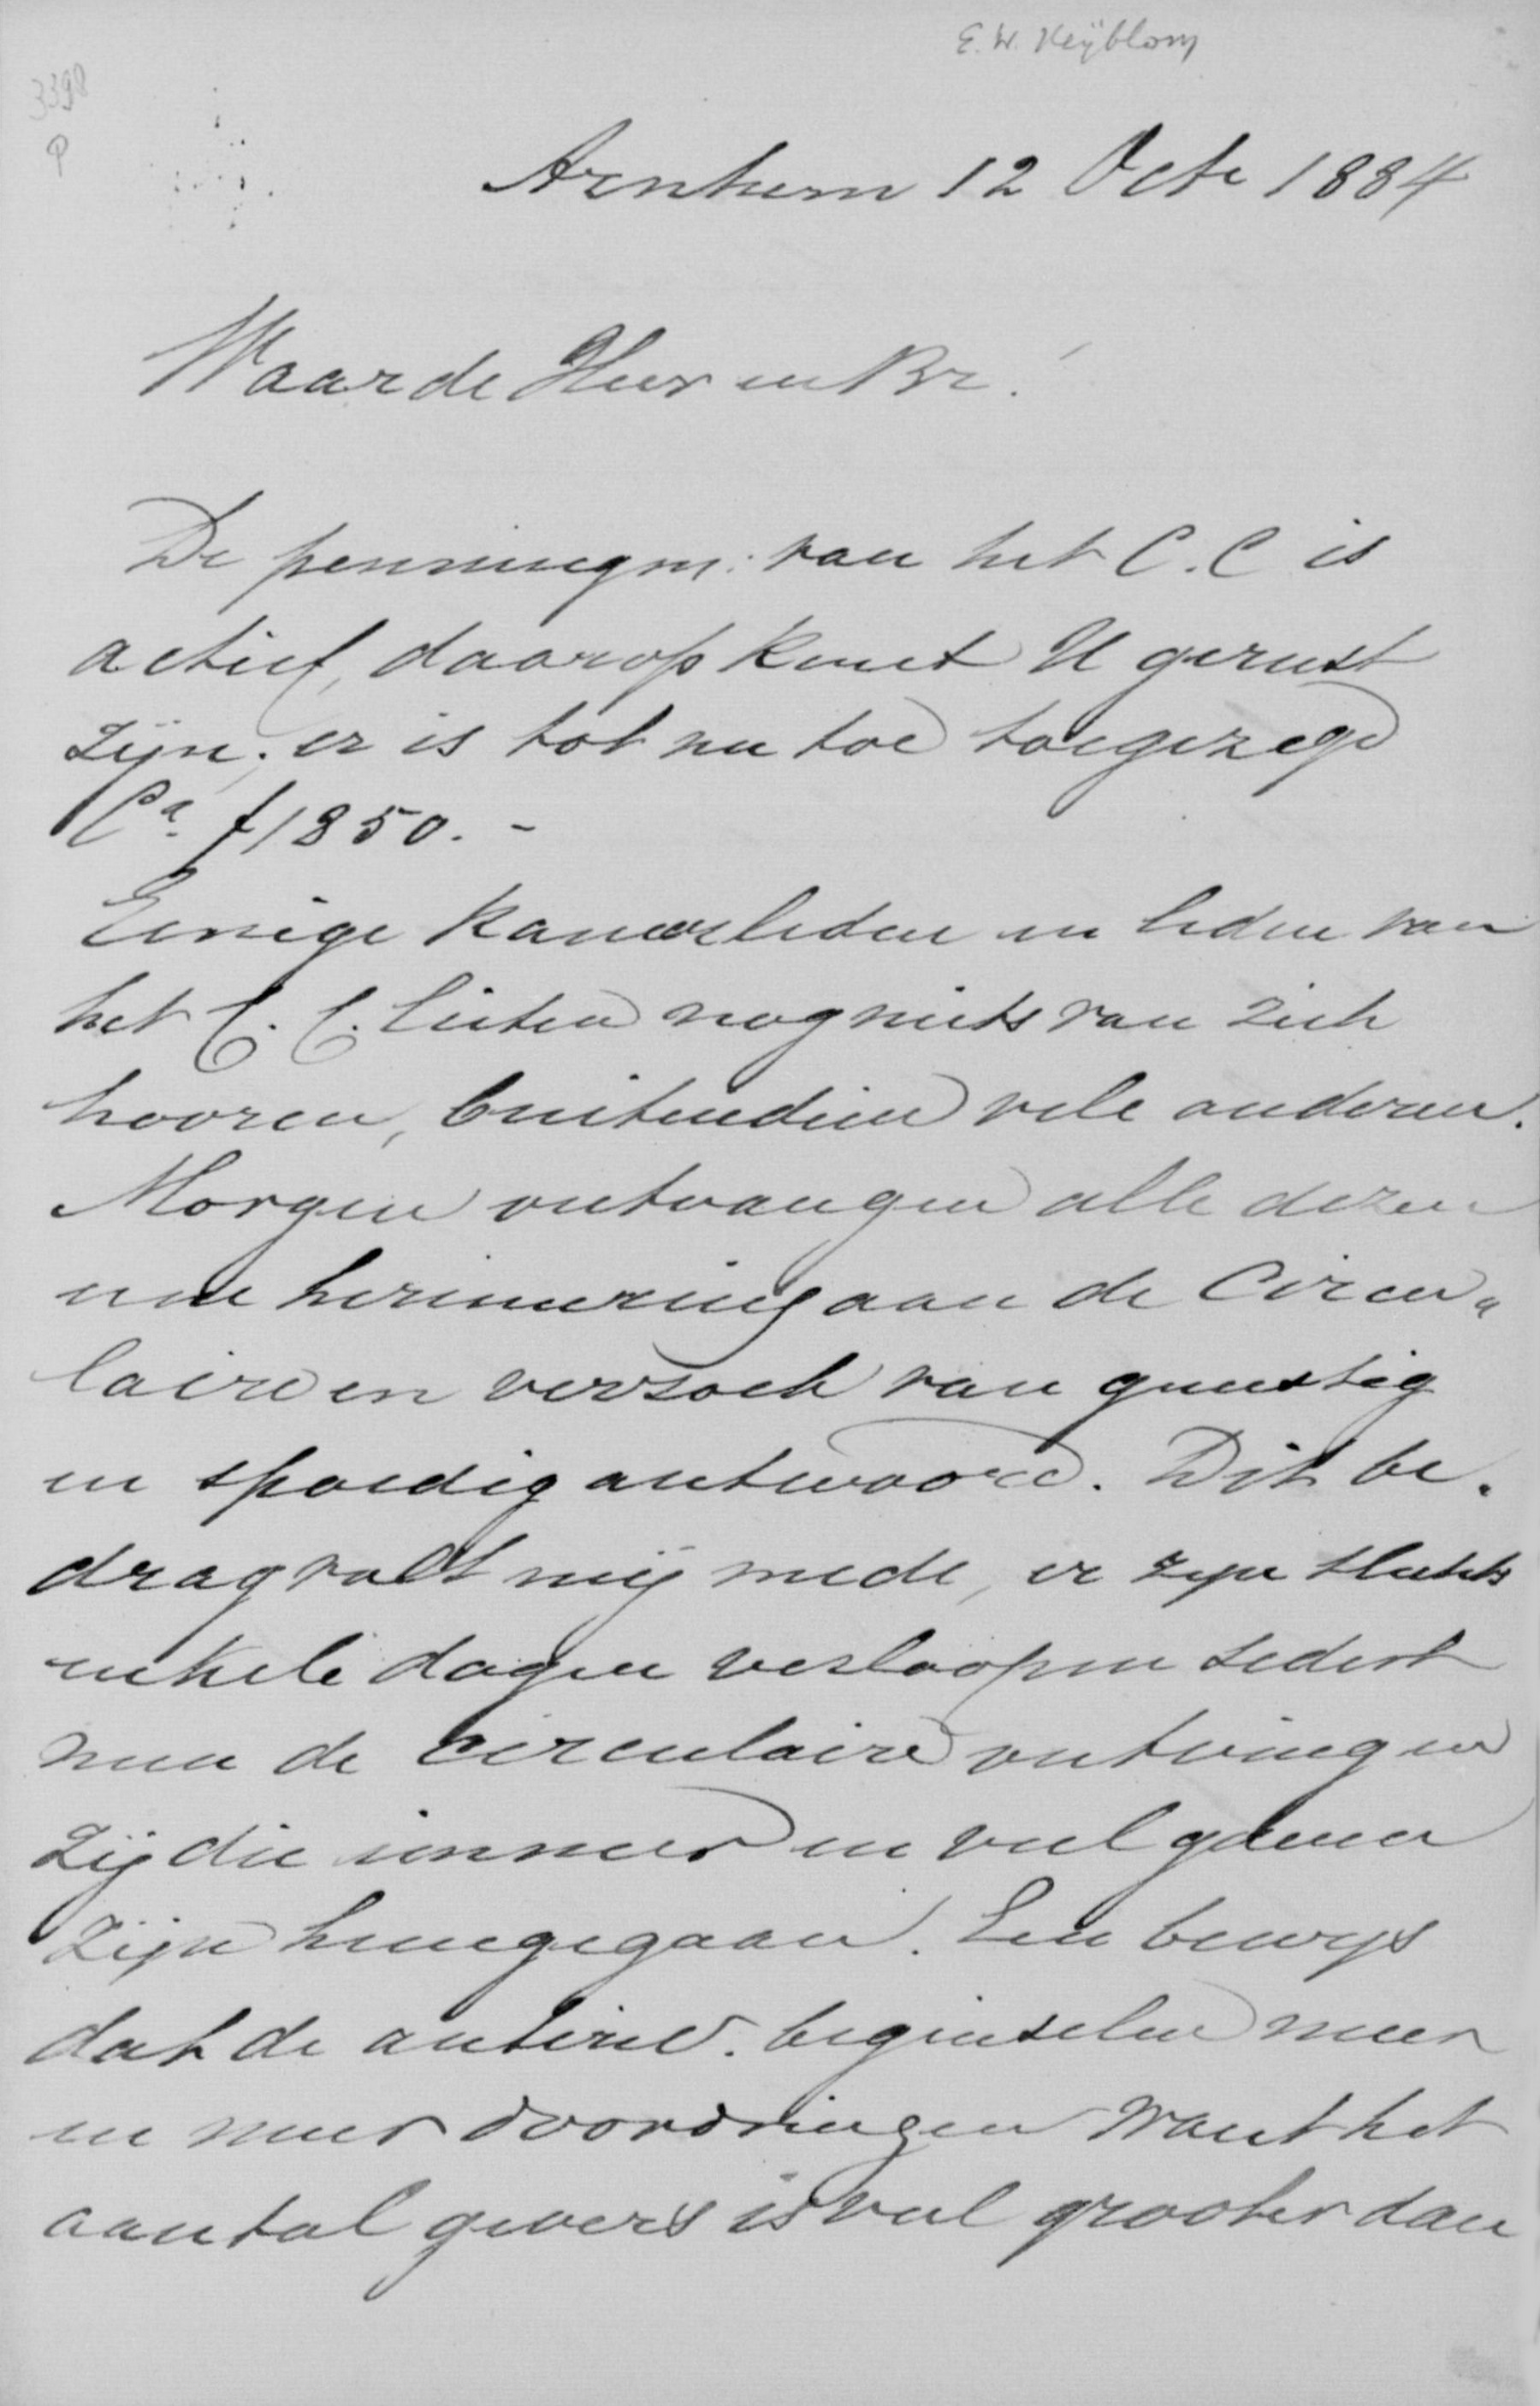 E. W. Heyblom
3398
P
Arnhem 12 Octr 1884
Waarde Heer en Br.!
De penningm: van het C. C is
actief, daarop kunt U gerust
zijn; er is tot nu toe toegezegd
Ca. f 1850.-
Eenige kamerleden en leden van
het C. C. lieten nog niets van zich
hooren, buitendien vele anderen.
Morgen ontvangen alle dezen
eene herinnering aan de Circu„
laire en verzoek van gunstig
en spoedig antwoord. Dit be.
drag valt mij mede, er zijn slechts
enkele dagen verloopen sedert
men de circulaire ontving en
zij die innen en veel geven
zijn heengegaan. Een bewijs
dat de antirev. beginselen meer
en meer doordringen want het
aantal gevers is veel grooter dan